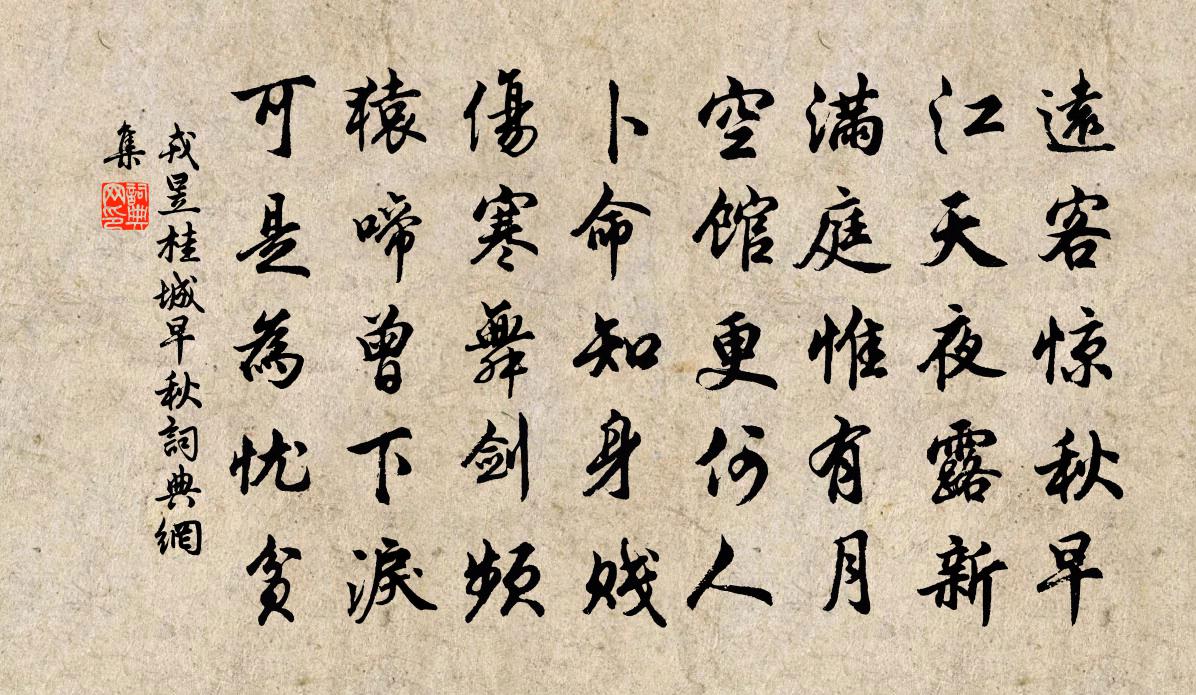 遠客惊秋早
江天夜露新
滿庭惟有月
空館更何人
卜命知身賤
傷寒舞剑頻
猿啼曾下淚
可是為忧貧
戎昱桂城早秋詞典網
集
詞典
网印